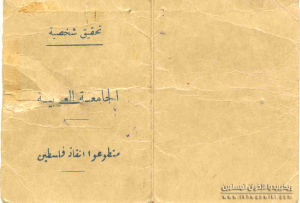 تحقيق شخصية
الجامعة العربية
متطوعوا انقاذ فلسطين